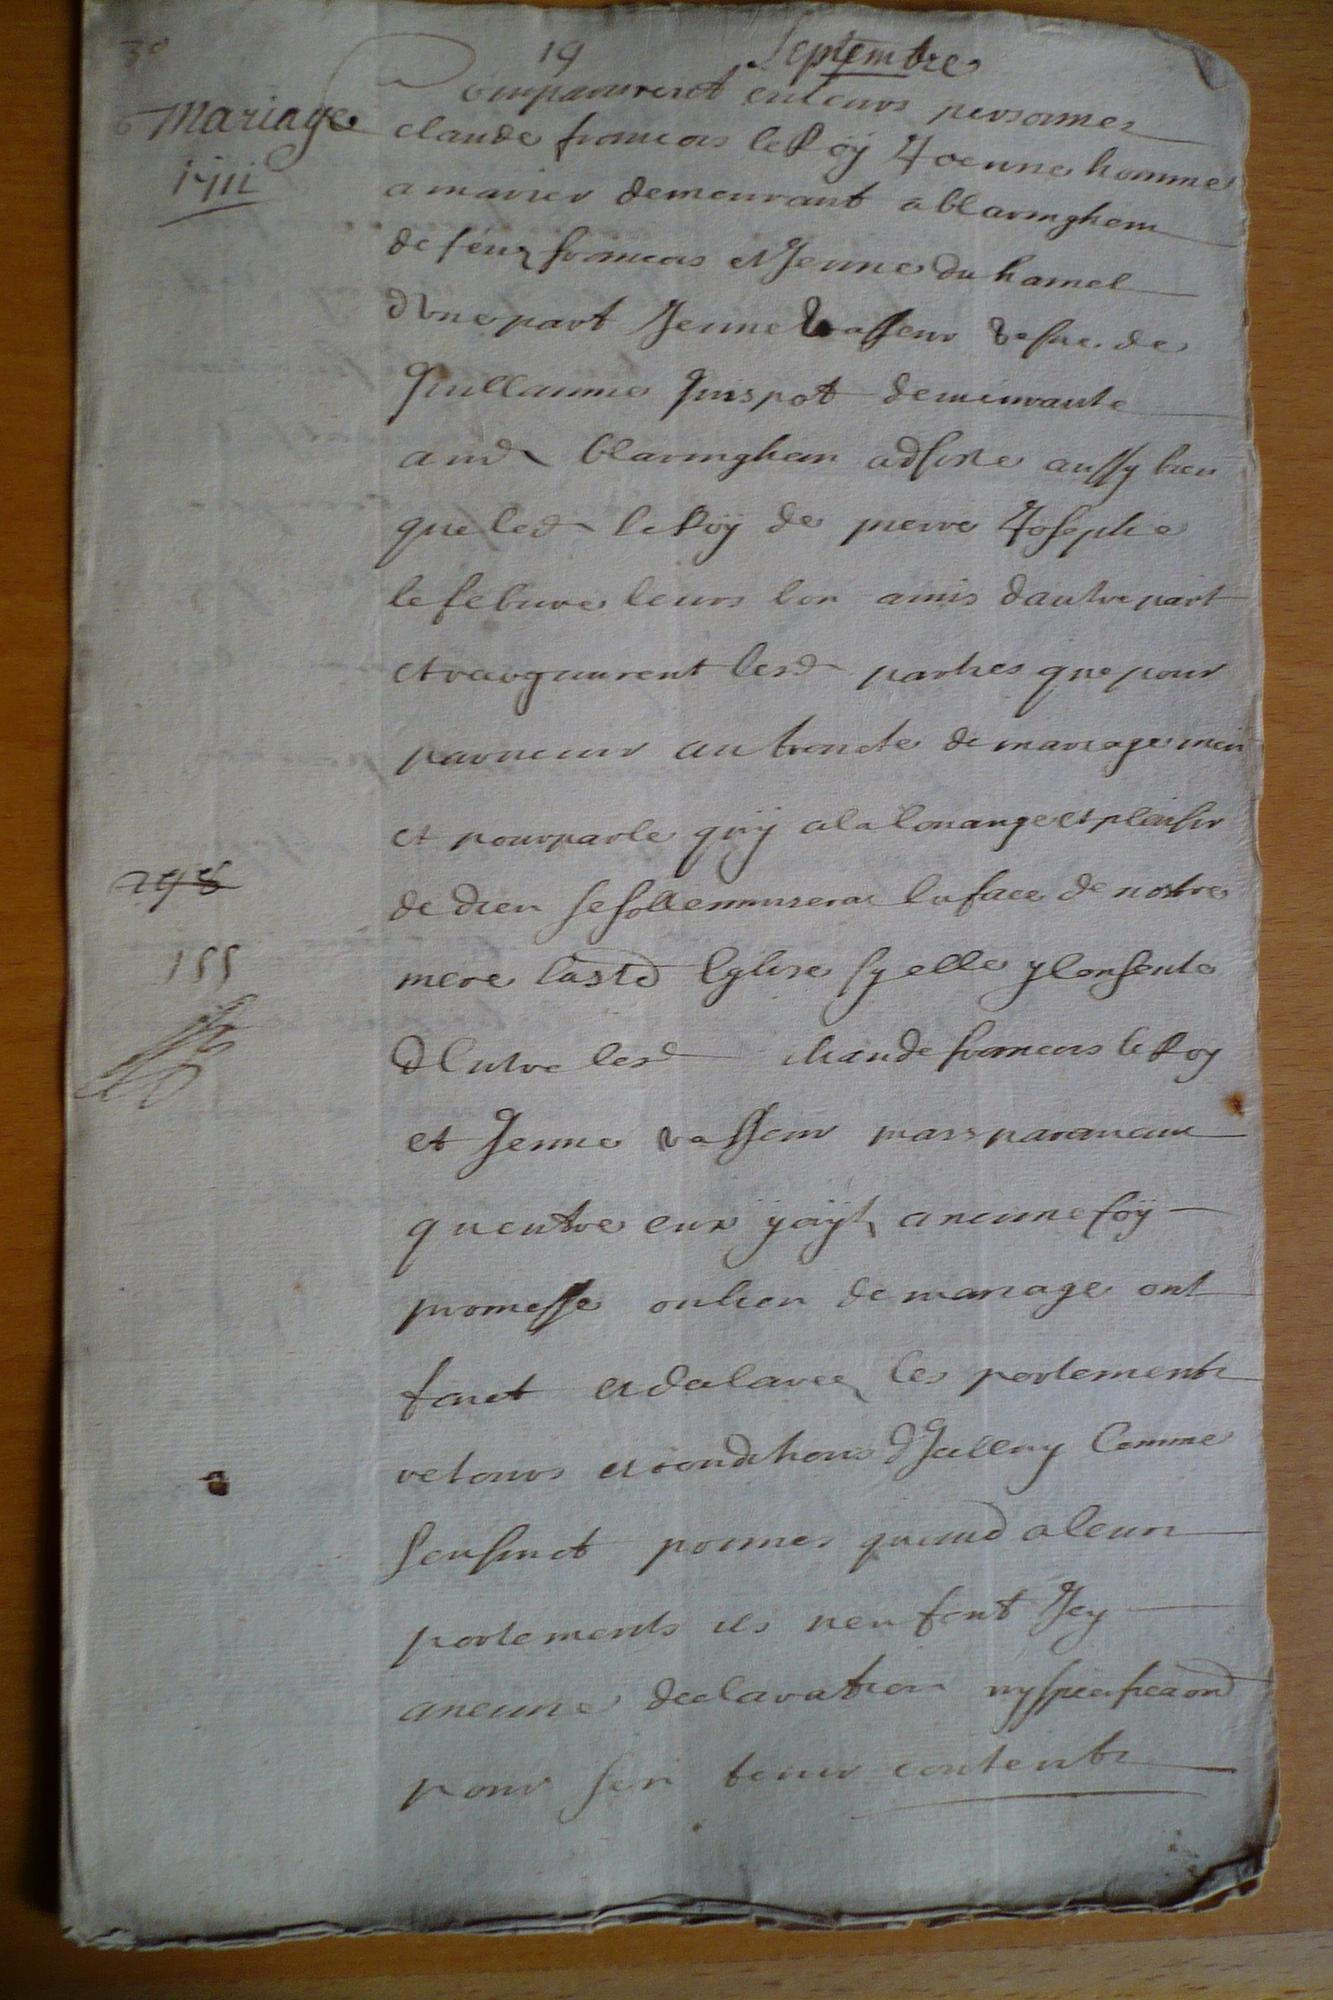 30
19 Septembre
Mariage
1711
Comparurent enleurs personnes
claude francois leRoÿ Joenne homme
amarier demeurant a blaringhem
de feuz francois et Jenne du hamel
dVne part Jenne Vasseur Vefue de
Guillaume Quispot demeurante
aud blaringhem adsiste aussy bien
que led leRoÿ de pierre Josephe
lefebure leurs bon amis dautre part
et recognurent lesd parties que pour
paruenir au traicte de mariage meu
et pourparle quy ala louange et plaisir
de dieu se sollemnisera en la face de nostre
mere la ste Eglise sy elle y Consente
dEntre lesd claude francois le Roy
et Jenne vasseur mais parauant
quentre eux y ayt aucune foÿ
promesse ou lien de mariage ont
faict et declarez les portements
retours et conditions dJcelluy Comme
sensuict primes quand a leur
portements ils nen font Jcy
aucune declaration ny specification
pour sen tenir contents
298
155